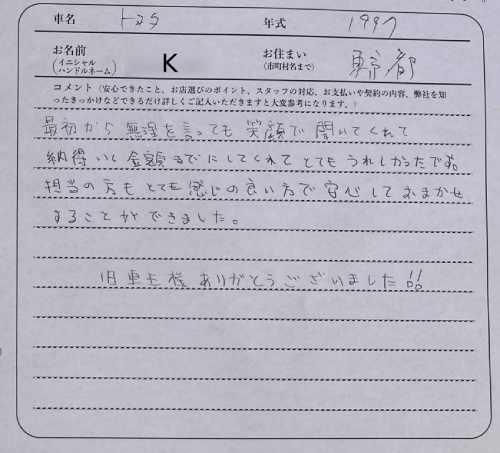 車名 トヨタ 年式 1997
お名前 (イニシャル ハンドルネーム) K お住まい (市町村名まで) 東京都
コメント（安心できたこと、お店選びのポイント、スタッフの対応、お支払いや契約の内容、弊社を知
ったきっかけなどできるだけ詳しくご記入いただきますと大変参考になります。）
最初から無理を言っても笑顔で聞いてくれて
納得いく金額までにしてくれてとてもうれしかったです。
担当の方もとても感じの良い方で安心しておまかせ
することができました。
旧車王様ありがとうございました!!